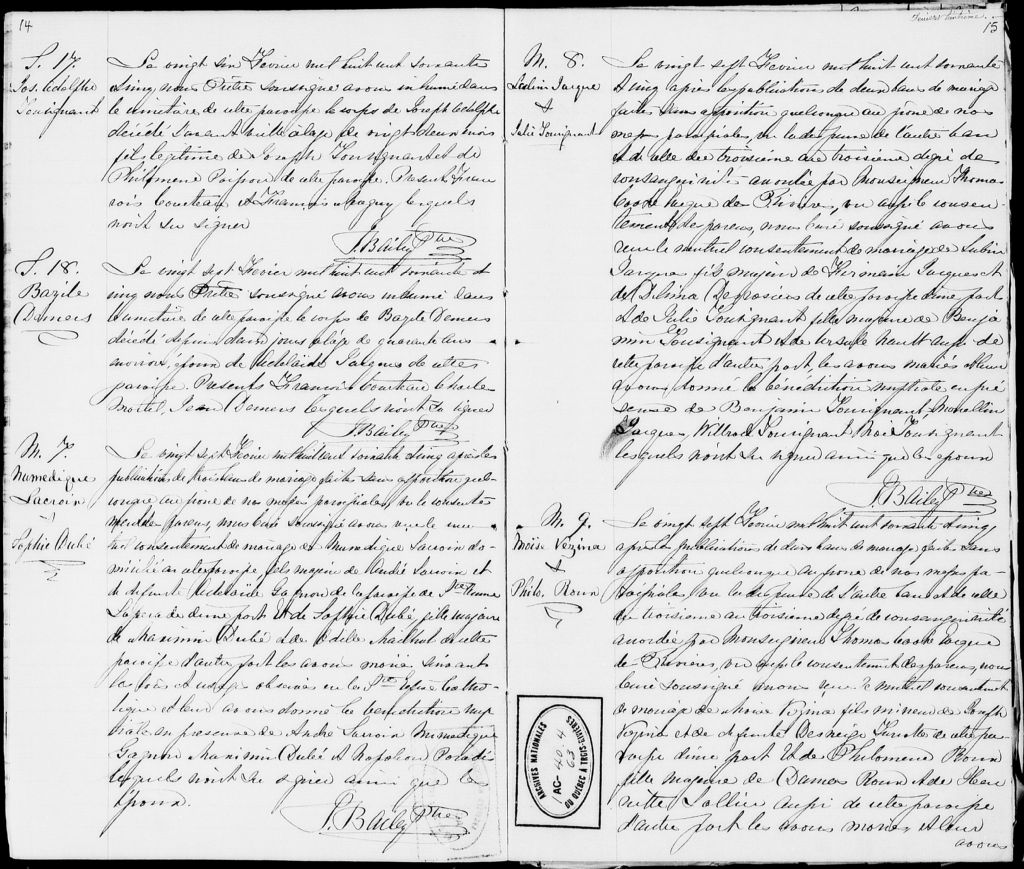 14
S. 17.
Jos. Adolphe
Tousignant
Le vingt six Fevrier mil huit cent soixante
& cinq nous Prêtre soussigné avons inhumé dans
le cimetière de cette paroisse le corps de Joseph Adolphe
décédé l'avant veille a l'age de vingt deux mois
fils legitime de Joseph Tousignant et de
Philomene Poisson de cette paroisse. Present Fran
cois Courteau et Francois lesquels
n'ont su signer
J. Bailey Ptre
S. 18.
Bazile
Demers
Le vingt sept Fevrier mil huit cent soixante et
cinq nous Prêtre soussigné avons inhumé dans
le cimetière de cette paroisse le corps de Bazile Demers
décédé depuis deux jours a l'age de quarante ans
environ, époux de Adelaide Jacques de cette
paroisse Presents Francois Courteau Charles
Jean Demers lesquels n'ont su signer
J. Bailey Ptre
M. 7.
Numedique
Lacroix
&
Sophie Dubé
Le vingt sept Fevrier mil huit cent soixante & cinq après les
publications de trois bans de mariage faites sans opposition quel-
conque au prone de nos messes paroissiales, vu le consente
ment des parens, nous Curé soussigné avons reçu le mu-
tuel consentement de mariage de Numedique Lacroix do-
micilié en cette paroisse fils majeur de André Lacroix et
de defunte Adelaide Gagnon de la paroisse de Ste Anne
Laperade d'une part Et de Sophie Dubé fille majeure
de Maximin Dubé & de Odille de cette
paroisse d'autre part les avons mariés suivant
les lois et usages observés en la Ste Eglise Catho-
lique et leur avons donné la bénédiction nup
tiale en presence de André Lacroix Numedique
Gagnon Maximin Dubé & Napoléon
lesquels n'ont su signer ainsi que les
Epoux.
J. Bailey Ptre
15
M. 8.
Ludin Jacque
&
Julie Tousignant
Le vingt sept Fevrier mil huit cent soixante
& cinq après les publications de deux bans de mariage
faites sans opposition quelconque au prone de nos
messes paroissiales, vu la dispense de l'autre ban
et de celle du troisième au troisième degré de
consanguinité accordée par Monseigneur Thomas
Cooke eveque des 3 Rivieres, vu aussi le consen-
tement des parens, nous Curé soussigné avons
reçu le mutuel consentement de mariage de Ludin
Jacques fils majeur de Hermenie Jacques et
de Delima Desrosiers de cette paroisse d'une part
& de Julie Tousignant fille majeure de Benja
min Tousignant et de Ursule aussi de
cette paroisse d'autre part, les avons mariés et leur
avons donné la bénédiction nuptiale en pré
sence de Benjamin Tousignant, Marcellin
Jacques, Wilfrod Tousignant Tousignant
lesquels n'ont su signer ainsi que les époux
J. Bailey Ptre
M. 9.
Moïse Vezina
&
Philo. Roux
Le vingt sept Fevrier mil huit cent soixante & cinq,
après la publication de deux bans de mariage faite sans
opposition quelconque au prone de nos messes pa-
roissiales, vu la dispense de l'autre ban et de celle
du troisième au troisième degré de consanguinité
accordée par Monseigneur Thomas Cooke eveque
des 3 Rivieres, vu aussi le consentement des parens, nous
Curé soussigné avons reçu le mutuel consentement
de mariage de Moise Vezina fils mineur de Joseph
Vezina et de defunte Desneiges de cette pa-
roisse d'une part Et de Philomene Roux
fille majeure de Damas Roux & de Hen
riette aussi de cette paroisse
d'autre part les avons mariés et leur
avons
ARCHIVES NATIONALES
DU QUÉBEC A TROIS-RIVIERES
AG- 40 4
63